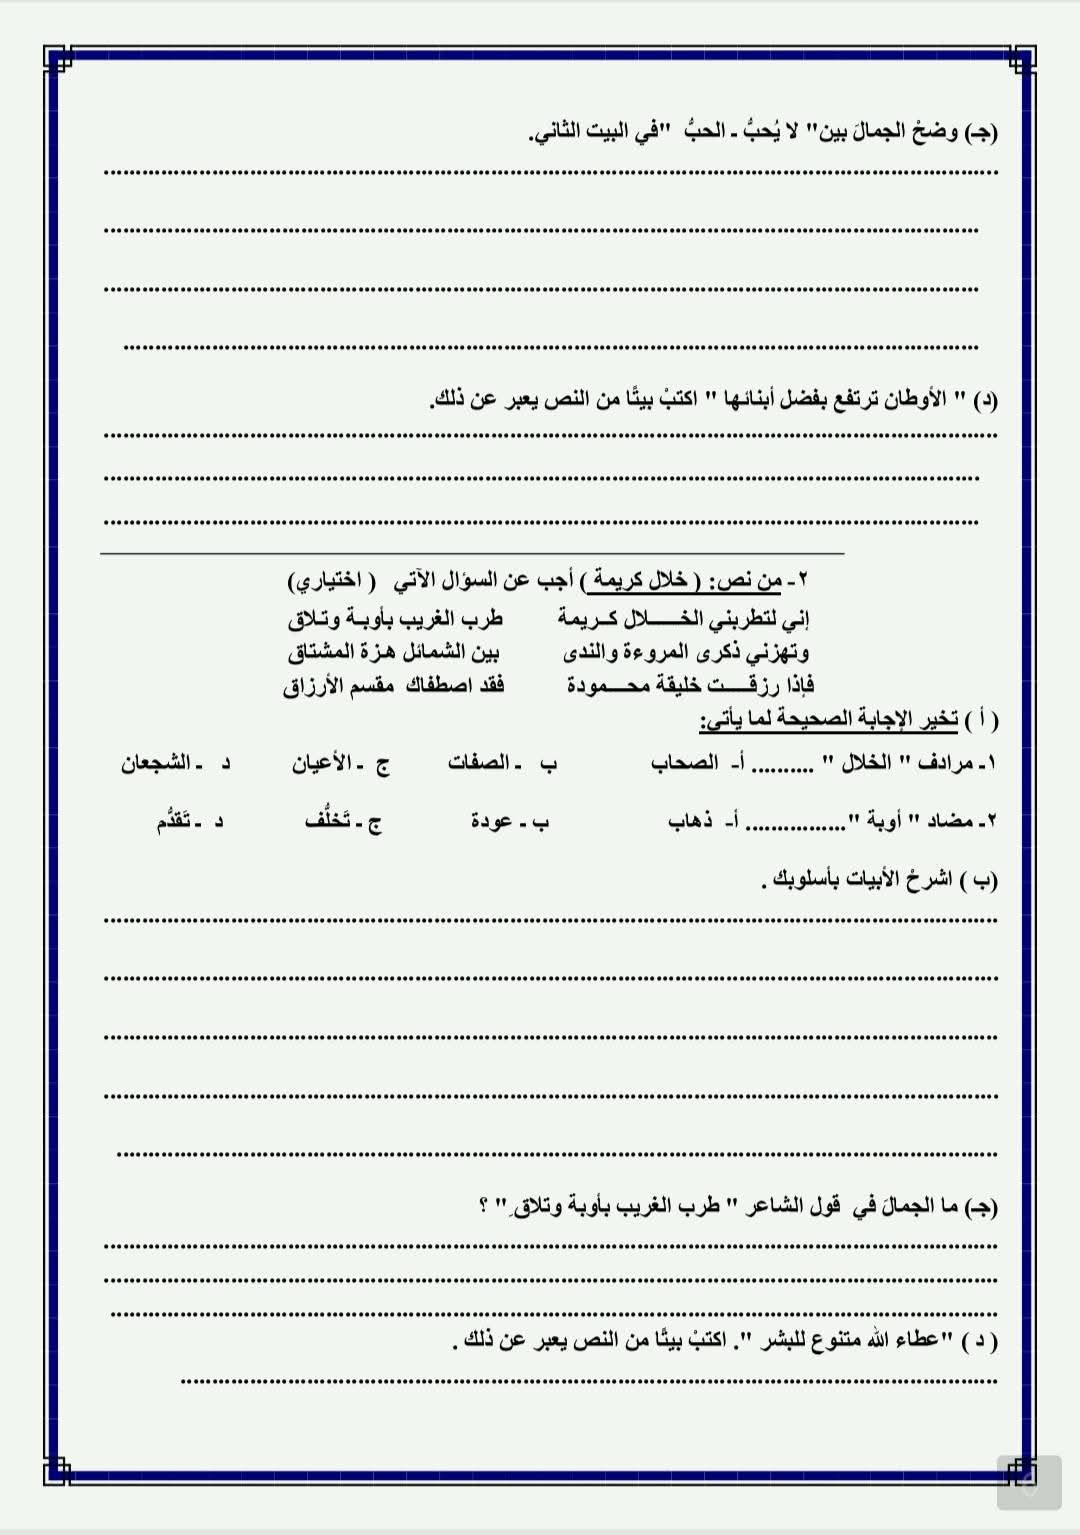 (جـ) وضحْ الجمالَ بين" لا يُحبُّ ـ الحبُّ "في البيت الثاني.
(د) " الأوطان ترتفع بفضل أبنائها " اكتبْ بيتًا من النص يعبر عن ذلك.
٢- من نص: ( خلال كريمة ) أجب عن السؤال الآتي ( اختياري)
إني لتطربني الخـــــلال كـريمة طرب الغريب بأوبـة وتـلاق
وتهزني ذكرى المروءة والندى بين الشمائل هـزة المشتاق
فإذا رزقـــت خليقة محـــمودة فقد اصطفاك مقسم الأرزاق
( أ ) تخير الإجابة الصحيحة لما يأتي:
١- مرادف " الخلال " .......... أ- الصحاب ب ـ الصفات ج ـ الأعيان د ـ الشجعان
٢- مضاد " أوبة "................ أ- ذهاب ب - عودة ج - تَخلُّف د - تَقدُّم
(ب ) اشرحْ الأبيات بأسلوبك .
(جـ) ما الجمالَ في قول الشاعر " طرب الغريب بأوبة وتلاقِ " ؟
( د ) "عطاء الله متنوع للبشر ". اكتبْ بيتًا من النص يعبر عن ذلك .